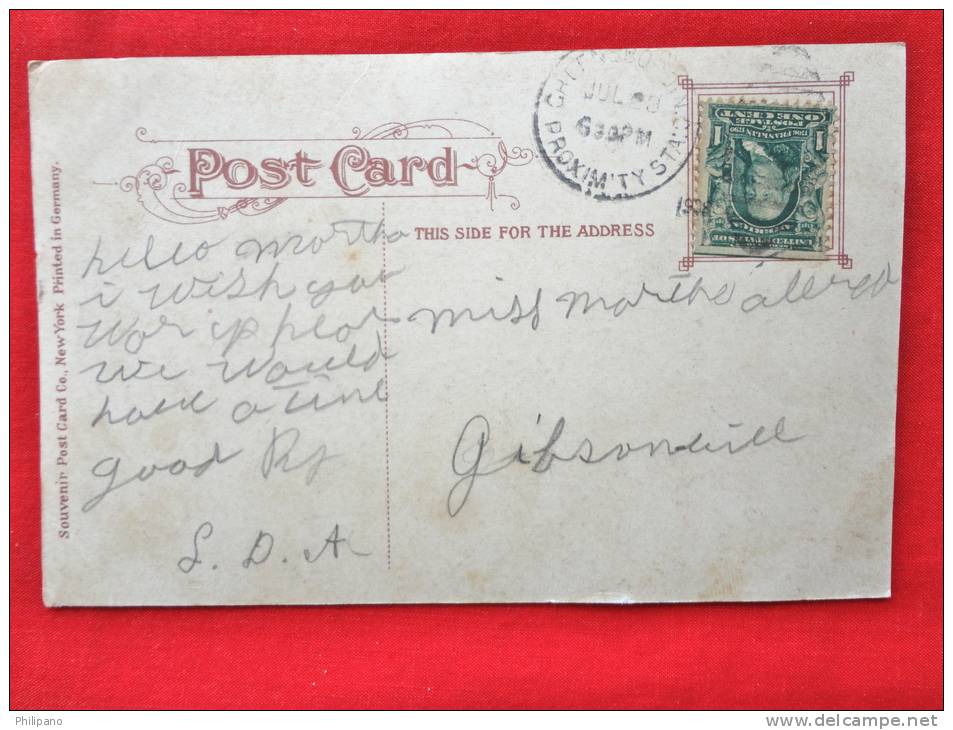 Post Card
THIS SIDE FOR THE ADDRESS
Souvenir Post Card Co., New York Printed in Germany.
GREENSBORO, N
JUL
630PM
PROXIM'TY STA
ONE CENT
POSTAGE
1706 FRANKLIN 1790
1 1
hello Martha
i wish you
wor up hear
we would
have a time
good By
S. D. A
miss martha allred
Gibsonvill
Philipano
www.delcampe.net